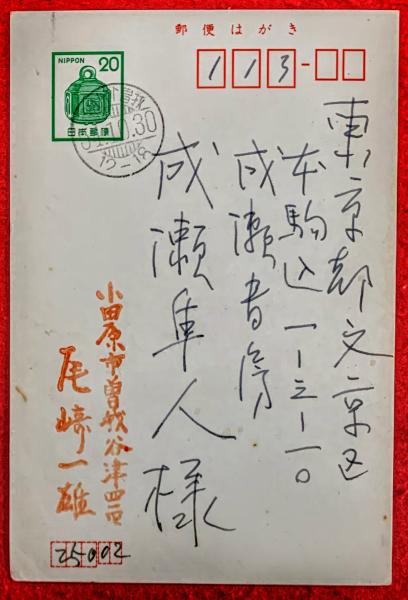 郵便はがき
NIPPON 20
日本郵便
下曽我
51.10.30
12-18
113-
東京都文京区
本駒込一ー三ー一〇
成瀬書房
成瀬隼人様
小田原市曽我谷津
尾崎一雄
250-02